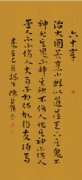 六十章
治大國若烹小鮮以道莅天下其鬼不
神非其鬼不神其神不傷人非其神不傷
人聖人亦不傷人夫兩不相傷故德交歸焉